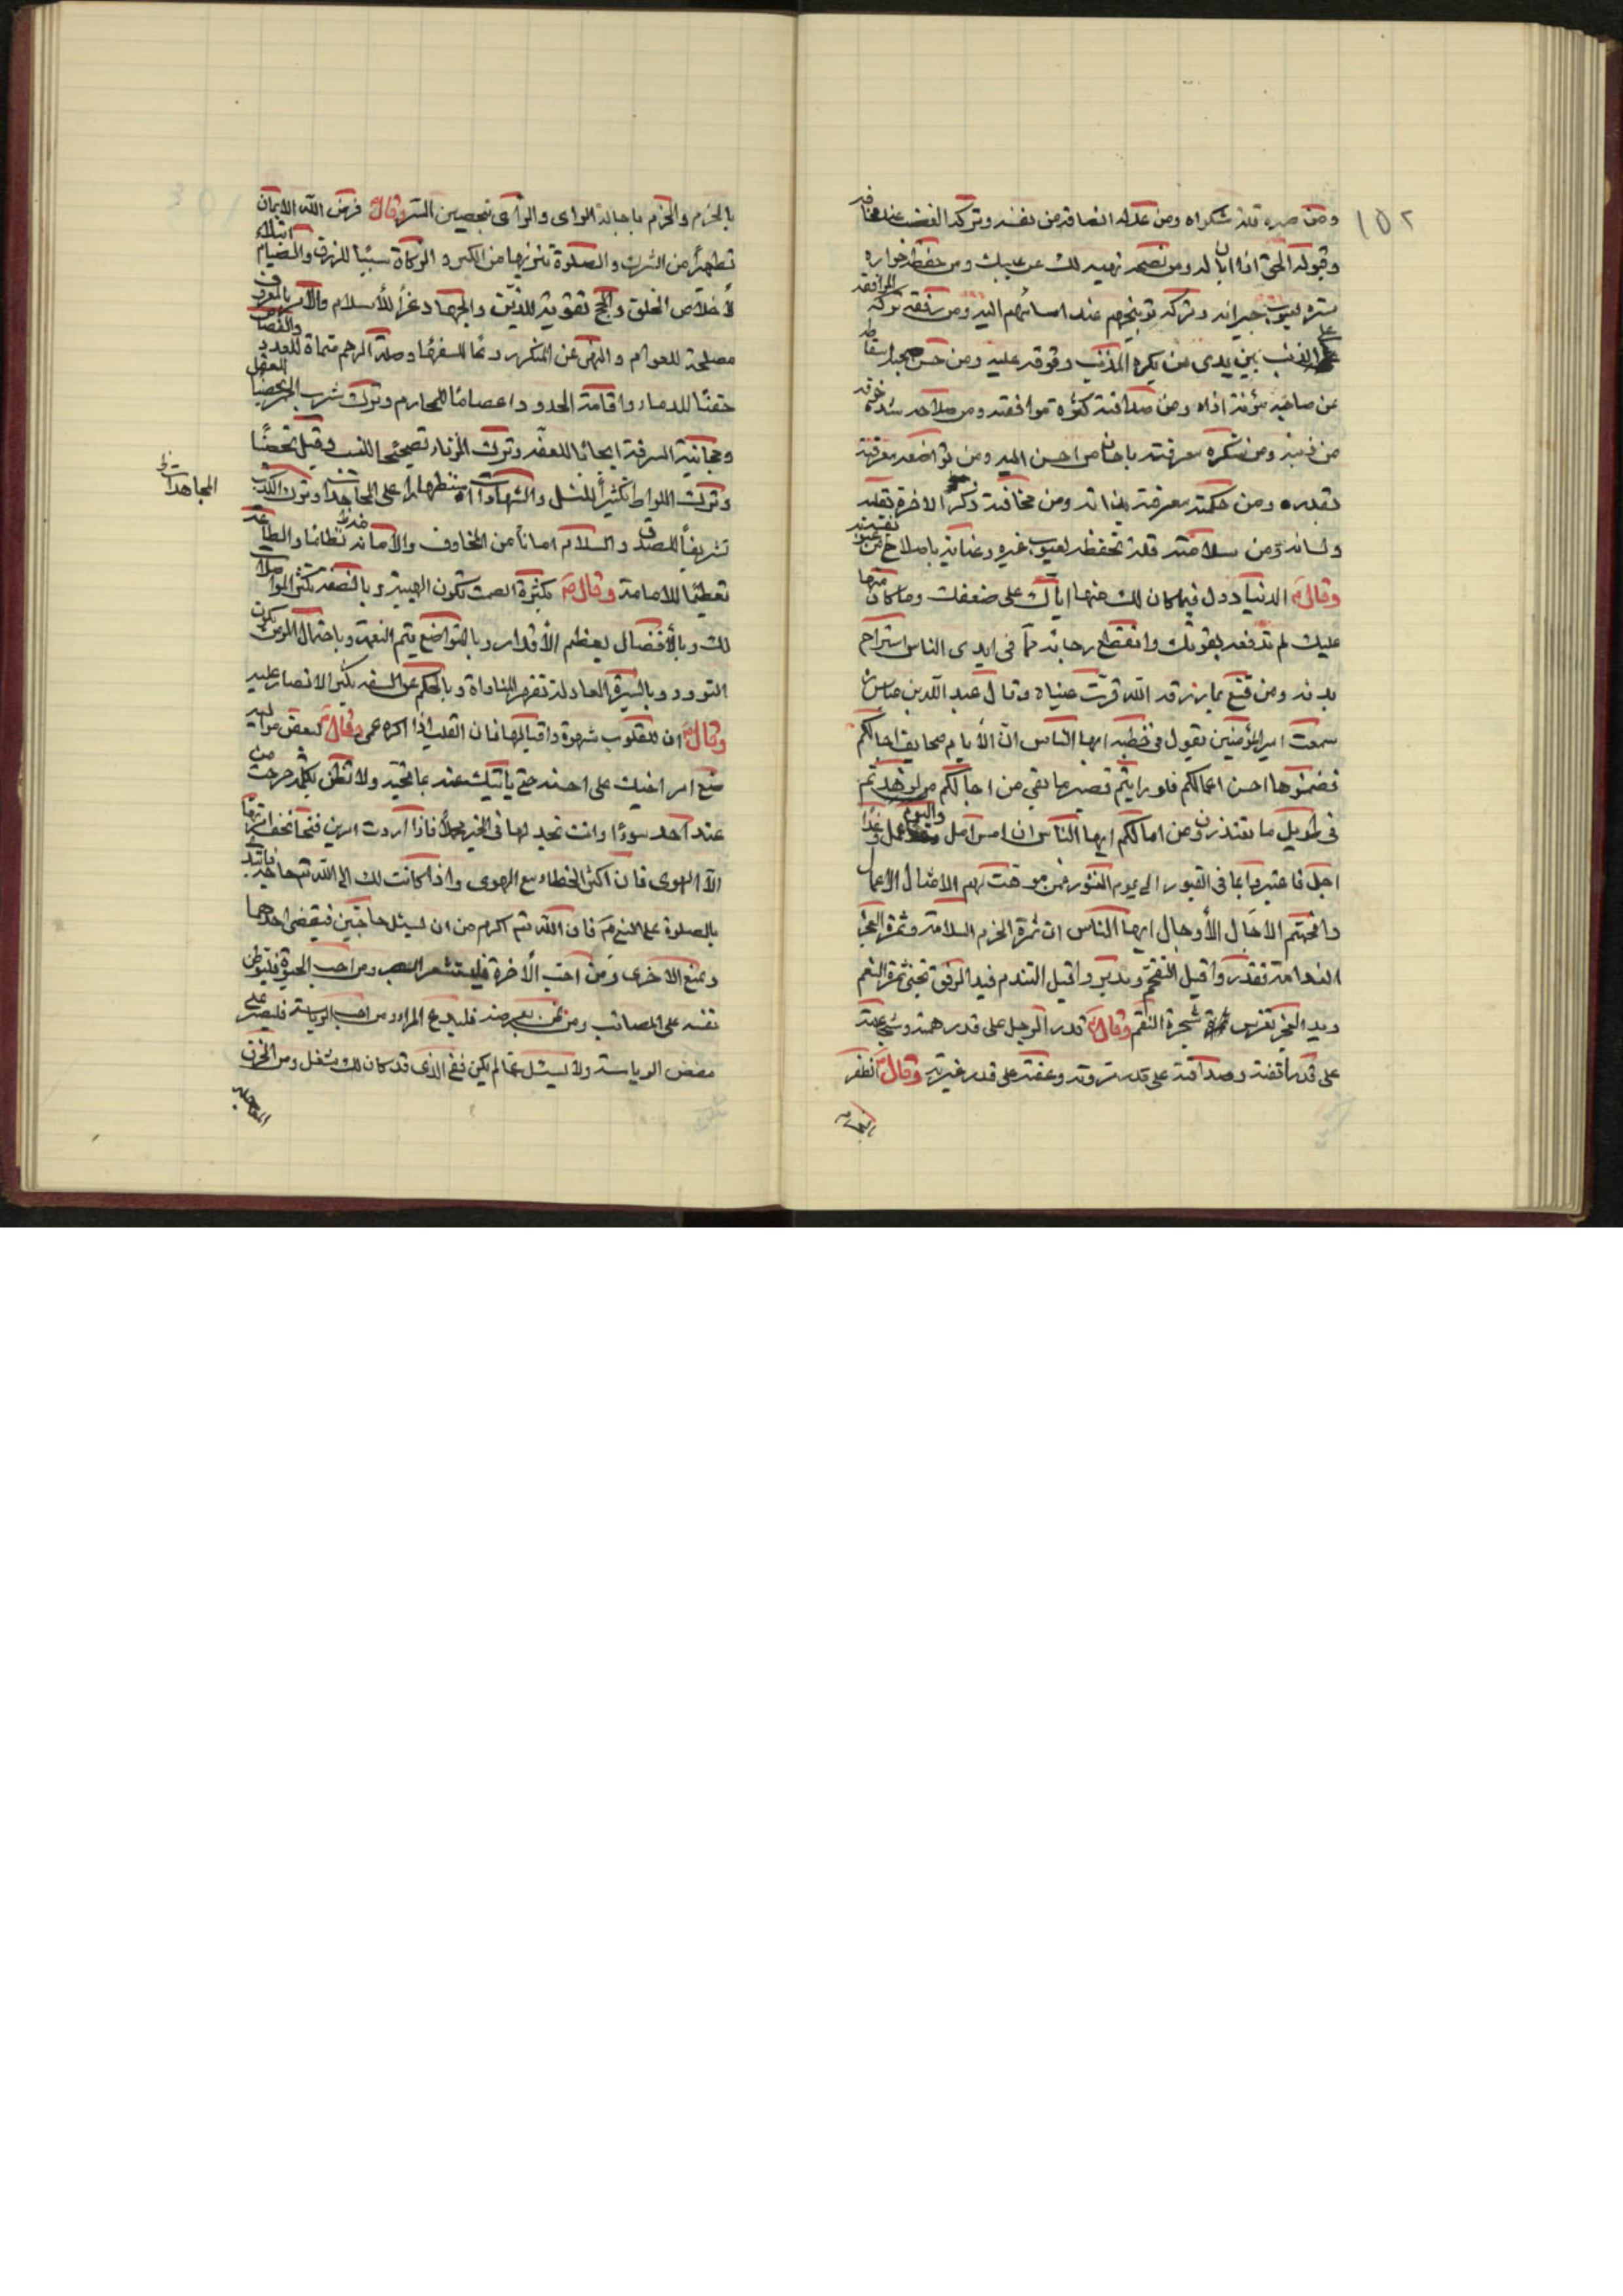 ١٥٢
ومن صبره قلة شكواه ومن عدله انصافه من نفسه وتركه الغضب عند مخافته
وقبوله الحق اذا ابان له ومن نصحه نهيه لك عن عيبك ومن حفظ جواره
ستره لعيوب جيرانه وتركه توبيخهم عند اسائتهم اليه ومن رفقه تركه الموافقة
على الذنب بين يدى من يكره المذنب وقوفه عليه ومن حسن صحبته اسقاطه
عن صاحبه مؤنة اذاه ومن صداقته كثرة موافقته ومن صلاحه شدة خوفه
من ذنبه ومن شكره معرفته باحسان من احسن اليه ومن تواضعه معرفته
بقدره ومن حكمته معرفته بذاته ومن مخافته ذكر الاخرة بقلبه
ولسانه ومن سلامته قلة تحفظه لعيوب غيره وعنايته باصلاح نفسه من عيوبه
وقال ع الدنيا دول فما كان لك منها اتاك على ضعفك وما كان منها
عليك لم تدفعه بقوتك وانقطع رجائه مما فى ايدى الناس استراح
بدنه ومن قنع بما رزقه الله قرت عيناه وقال عبد الله بن عباس
سمعت امير المؤمنين يقول فى خطبه ايها الناس ان الأيام صحايف اجالكم
فضمنوها احسن اعمالكم فلو رايتم قصير ما بقى من اجالكم لزهدتم
فى طويل ما تقتدرون من امالكم ايها الناس ان امس امل واليوم عمل وغدا
اجل فاعتبروا بما فى القبور الى يوم النشور
وافحتم الاجال الأوجال ايها الناس ان ثمرة الحزم السلامة وثمرة العجز
الندامة فقدر واقبل التفخم وتدبر واقبل التندم فيد الرفق تجنى ثمرة النعم
ويد العجز تغرس شجرة النقم وقال ع قدر الرجل على قدر همته وشجاعته
على قدر انفته وصداقته على قدر مروته وعفته على قدر غيرته وقال ع الظفر
بالحزم
بالحزم والحزم باجالة الراى والراى بتحصين السر وقال ع فرض الله الايمان
تطهيرا من الشرك والصلوة تنزيها من الكبر والزكاة سببا للرزق والصيام ابتلاء
لأخلاص الخلق والحج تقوية للدين والجهاد عزا للأسلام والأمر بالمعروف
مصلحة للعوام والنهى عن المنكر ردعا للسفهاء وصلة الرحم منماة للعدد والقصاص
حقنا للدماء واقامة الحدود اعصاما للمحارم وترك شرب الخمر تحصينا للعقل
ومجانبة السرقة ايجابا للعفة وترك الزناء تصحيحا للنسب وقيل تحصنا
وترك اللواط تكثيرا للنسل والشهادات استظهارا على المجاحدات وترك الكذب
المجاهدات ظ
تشريفا للصدق والسلام امانا من المخاوف والأمانة نظاما والطاعة
تعظيما للامامة وقال ع بكثرة الصمت تكون الهيبة وبالنصفة تكثر المواصلات
لك وبالأفضال يعظم الأقدار وبالتواضع يتم النعمة وباحتمال المؤمن يكون
التودد وبالسيرة العادلة تقهر المناواة وبالحلم عن السفيه يكثر الانصار عليه
وقال ع ان للقلوب شهوة واقبالها فان القلب اذا اكره عمى وقال ع لبعض مواليه
ضع امر اخيك على احسنه حتى ياتيك عنه ما تحبه ولا تظن بكلمة خرجت من
عند احد سوءا وانت تجد لها فى الخير محملا فاذا اردت امرين فتجانف اقربهما
الا الهوى فان اكثر الخطاء مع الهوى واذا كانت لك الى الله تع حاجة فابتدء
بالصلوة على النبى ص فان الله تع اكرم من ان يسئل حاجتين فيقضى احدهما
ويمنع الاخرى ومن احب الأخرة فليستشعر الصبر ومن احب الحيوة فليوطن
نفسه على المصائب ومن ضن بعرضه فليدع المراء ومن احب الرياسة فليصبر على
مضض الرياسة ولا يسئل عما لم يكن ففى الذى قد كان لك شغل ومن الخرق
المعاجلة